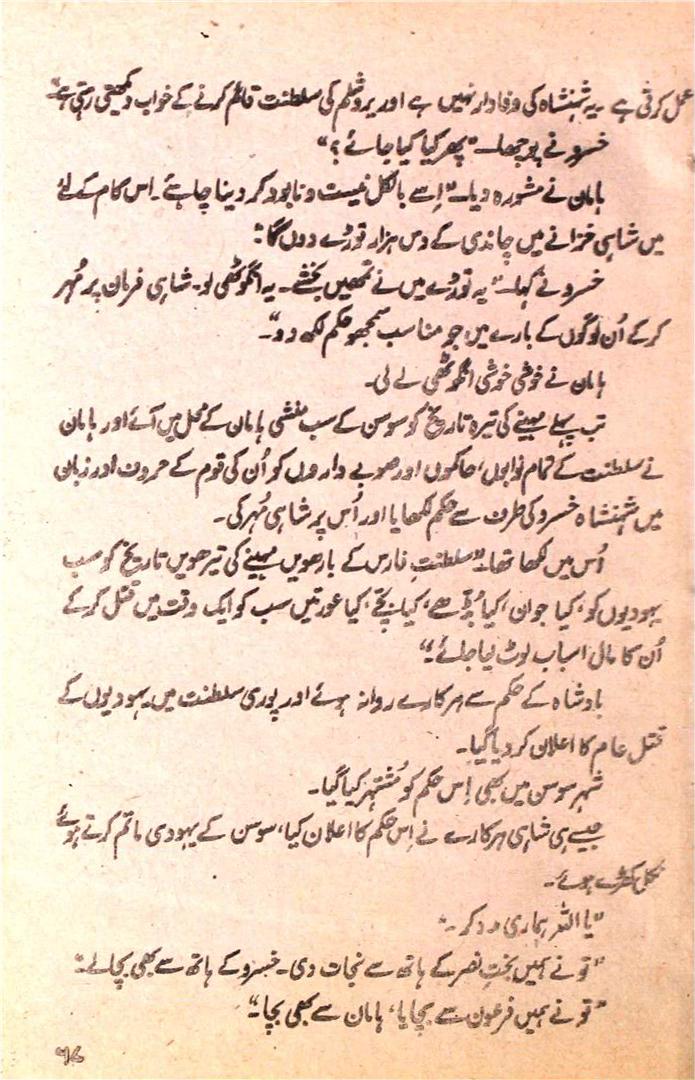 عمل کرتی ہے۔ یہ شہنشاہ کی وفادار نہیں ہے اور یروشلم کی سلطنت قائم کرنے کے خواب دیکھتی رہتی ہے۔"
خسرو نے پوچھا۔ "پھر کیا کیا جائے؟"
ہامان نے مشورہ دیا۔ "اِسے بالکل نیست و نابود کر دینا چاہئے۔ اس کام کے لئے
میں شاہی خزانے میں چاندی کے دس ہزار توڑے دوں گا۔"
خسرو نے کہا۔ "یہ توڑے میں نے تمھیں بخشے۔ یہ انگوٹھی لو۔ شاہی فرمان پر مُہر
کر کے اُن لوگوں کے بارے میں جو مناسب سمجھو حکم لکھ دو۔"
ہامان نے خوشی خوشی انگوٹھی لے لی۔
تب پہلے مہینے کی تیرہ تاریخ کو سوسن کے سب منشی ہامان کے محل میں آئے اور ہامان
نے سلطنت کے تمام نوابوں، حاکموں اور صوبے داروں کو اُن کی قوم کے حروف اور زبان
میں شہنشاہ خسرو کی طرف سے حکم لکھایا اور اُس پر شاہی مُہر کی۔
اُس میں لکھا تھا۔ "سلطنتِ فارس کے بارھویں مہینے کی تیرھویں تاریخ کو سب
یہودیوں کو، کیا جوان، کیا بُڈھے، کیا بچّے، کیا عورتیں سب کو ایک وقت میں قتل کر کے
اُن کا مال اسباب لوٹ لیا جائے۔"
بادشاہ کے حکم سے ہرکارے روانہ ہوئے اور پوری سلطنت میں یہودیوں کے
قتل عام کا اعلان کر دیا گیا۔
شہر سوسن میں بھی اِس حکم کو مُشتہر کیا گیا۔
جیسے ہی شاہی ہرکارے نے اِس حکم کا اعلان کیا، سوسن کے یہودی ماتم کرتے ہوئے
نکل کھڑے ہوئے۔
"یا اللہ ہماری مدد کر۔"
"تو نے ہمیں بختِ نصر کے ہاتھ سے نجات دی۔ خسرو کے ہاتھ سے بھی بچا لے۔"
"تو نے ہمیں فرعون سے بچایا، ہامان سے بھی بچا۔"